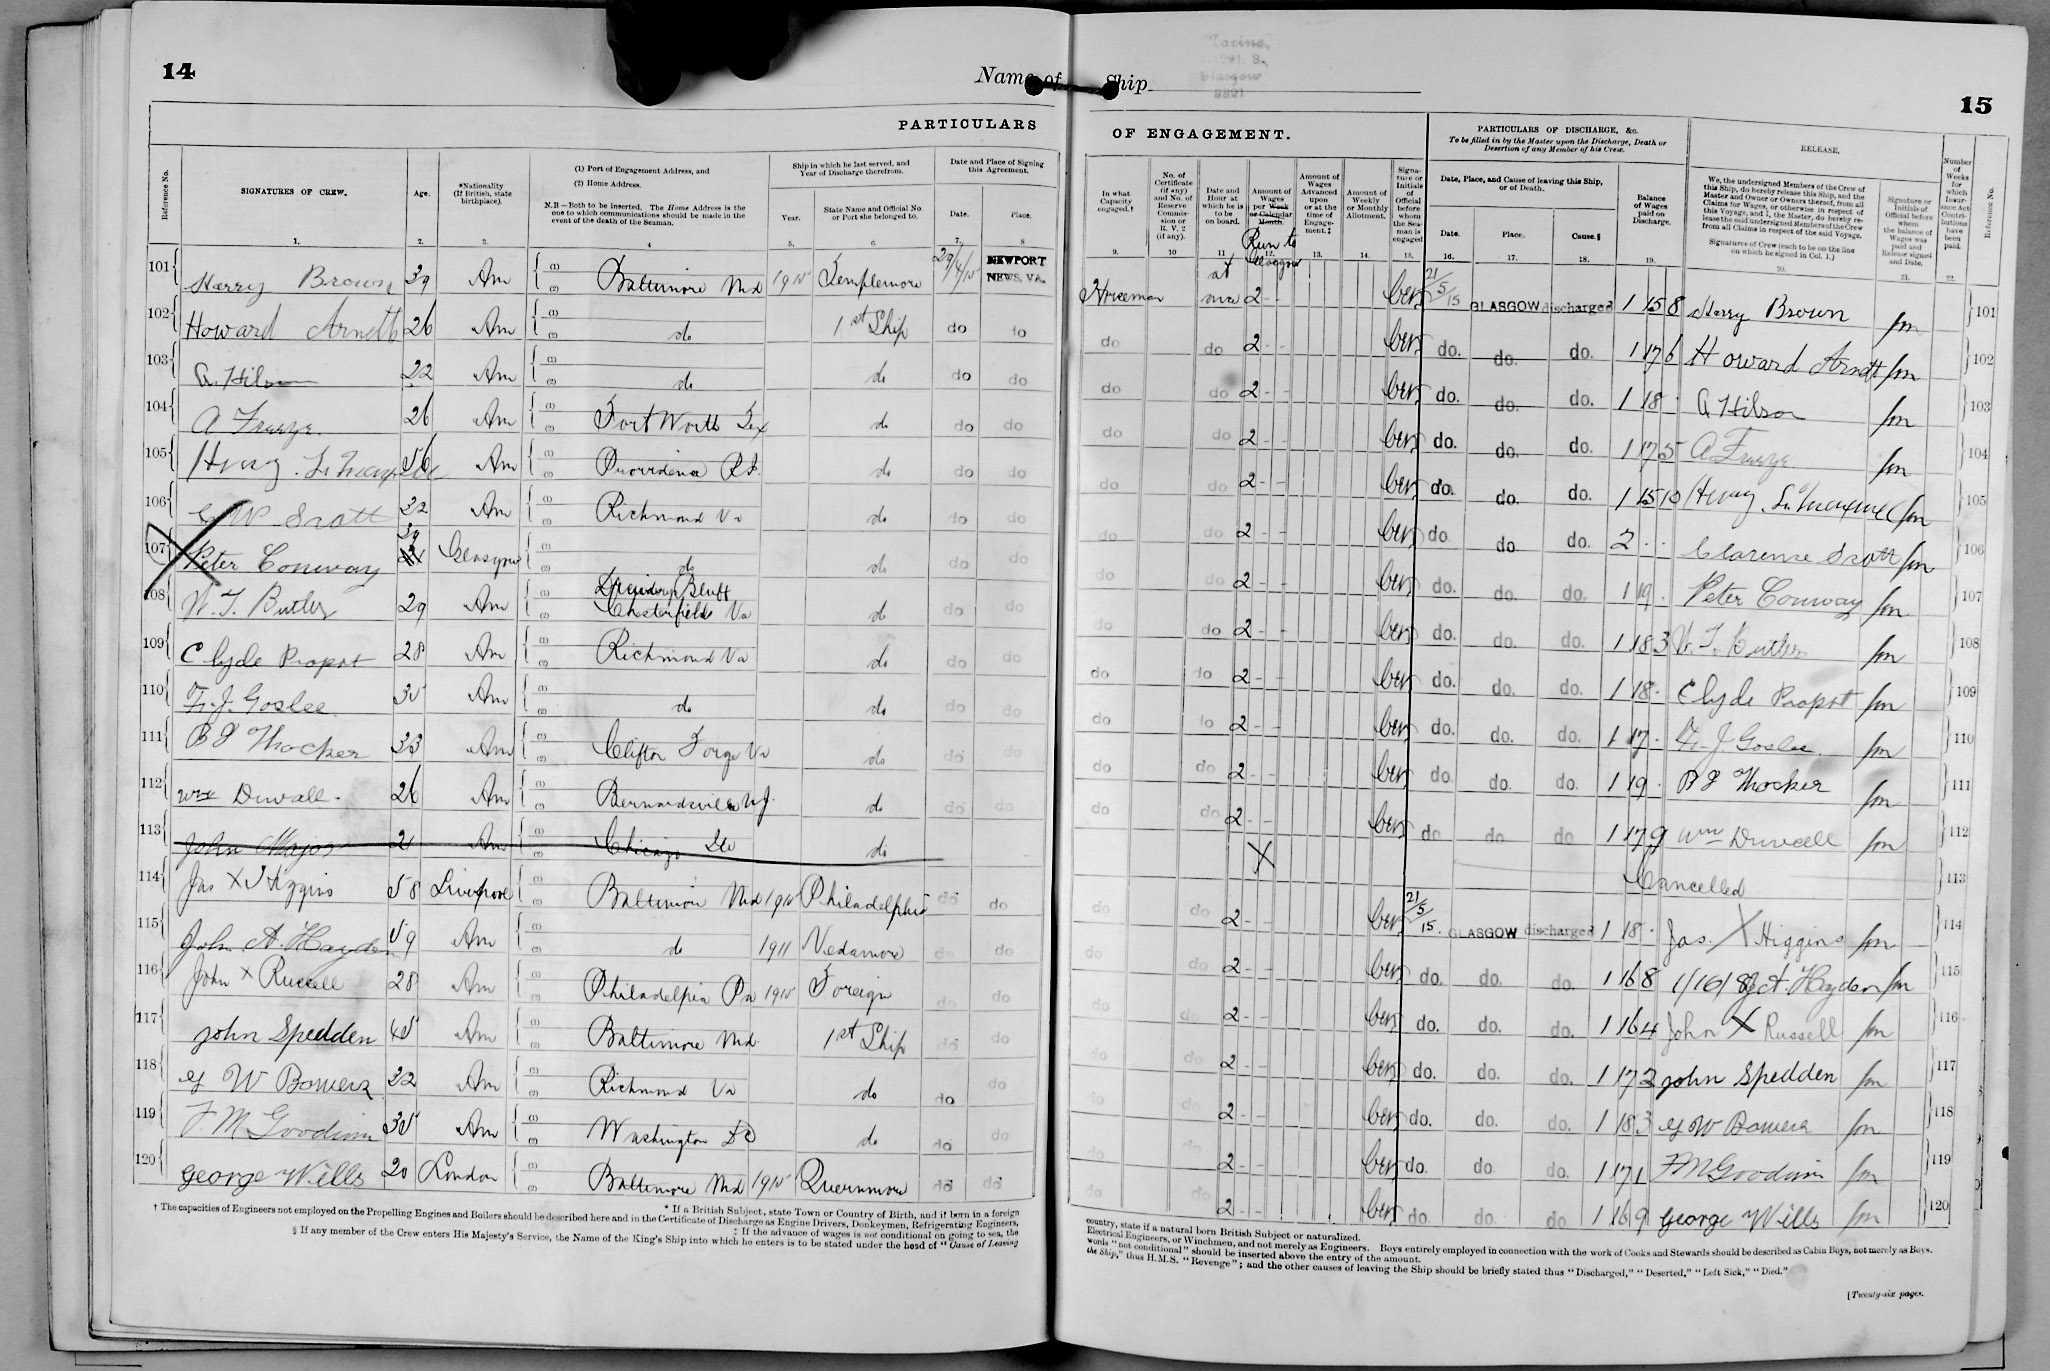 14
Name of Ship
Marine
Glasgow
15
PARTICULARS OF ENGAGEMENT.
PARTICULARS OF DISCHARGE, &c.
To be filled in by the Master upon the Discharge, Death or
Desertion of any Member of his Crew.
RELEASE.
Reference No.
SIGNATURES OF CREW.
Age.
*Nationality
(If British, state
birthplace).
(1) Port of Engagement Address, and
(2) Home Address.
N.B—Both to be inserted. The Home Address is the
one to which communications should be made in the
event of the death of the Seaman.
Ship in which he last served, and
Year of Discharge therefrom.
Year.
State Name and Official No.
or Port she belonged to.
Date and Place of Signing
this Agreement.
Date.
Place.
In what
Capacity
engaged.†
No. of
Certificate
(if any)
and No. of
Reserve
Commis-
sion or
R. V. 2
(if any).
Date and
Hour at
which he is
to be
on board.
Amount of
Wages
per Week
or Calendar
Month.
Run to
Glasgow
Amount of
Wages
Advanced
upon
or at the
time of
Engage-
ment.‡
Amount of
Weekly
or Monthly
Allotment.
Signa-
ture or
Initials
of
Official
before
whom
the Sea-
man is
engaged
Date, Place, and Cause of leaving this Ship,
or of Death.
Date.
Place.
Cause.§
Balance
of Wages
paid on
Discharge.
We, the undersigned Members of the Crew of
this Ship, do hereby release this Ship, and the
Master and Owner or Owners thereof, from all
Claims for Wages, or otherwise in respect of
this Voyage, and I, the Master, do hereby re-
lease the said undersigned Members of the Crew
from all Claims in respect of the said Voyage.
Signatures of Crew (each to be on the line
on which he signed in Col. 1.)
Signature or
Initials of
Official before
whom
the balance of
Wages was
paid and
Release signed
and Date.
Number
of
Weeks
for
which
Insur-
ance Act
Contri-
butions
have
been
paid.
Reference No.
1. 2. 3. 4 5. 6. 7. 8 9. 10 11 12. 13. 14. 15. 16. 17. 18. 19. 20. 21. 22.
101 Harry Brown 39 Am (1) (2) Baltimore Md 1915 Templemore 29/4/15 NEWPORT NEWS, VA. Horseman at once 2 - - 21/5/15 GLASGOW discharged 1 15 8 Harry Brown 101
102 Howard Arndt 26 Am (1) (2) do 1st Ship do do do do 2 - - do. do. do. 1 17 6 Howard Arndt 102
103 A. Hilson 22 Am (1) (2) do do do do do do 2 - - do. do. do. 1 18 - A Hilson 103
104 A Freeze 26 Am (1) (2) Fort Worth Tex do do do do do 2 - - do. do. do. 1 17 5 A Freeze 104
105 Henry L. Maxwell 56 Am (1) (2) Providence R.I. do do do do do 2 - - do. do. do. 1 15 10 Henry L. Maxwell 105
106 C W Scott 22 Am (1) (2) Richmond Va do do do do do 2 - - do. do. do. 2 - - Clarence Scott 106
107 Peter Conway 39 Glasgow (1) (2) do do do do do do 2 - - do. do. do. 1 19 - Peter Conway 107
108 W. T. Butler 29 Am (1) (2) Bluff Chesterfield Va do do do do do 2 - - do. do. do. 1 18 3 W. T. Butler 108
109 Clyde Propst 28 Am (1) (2) Richmond Va do do do do do 2 - - do. do. do. 1 18 - Clyde Propst 109
110 F. J. Goslee 35 Am (1) (2) do do do do do do 2 - - do. do. do. 1 17 - F. J Goslee 110
111 B J Thocker 33 Am (1) (2) Clifton Forge Va do do do do do 2 - - do. do. do. 1 19 - B J Thocker 111
112 Wm Duvall 26 Am (1) (2) Bernardsville N.J. do do do do do 2 - - do do do 1 17 9 Wm Duvall 112
113 John Major 21 Am (1) (2) Chicago Ill do X Cancelled 113
114 Jas X Higgins 58 Liverpool (1) (2) Baltimore Md 1915 Philadelphia do do do do 2 - - 21/5/15. GLASGOW discharged 1 18 - Jas. X Higgins 114
115 John A. Hayden 59 Am (1) (2) do 1911 Vedamore do do do do 2 - - do. do. do. 1 16 8 1/16/8 J A. Hayden 115
116 John X Russell 28 Am (1) (2) Philadelphia Pa 1915 Foreign do do do do 2 - - do. do. do. 1 16 4 John X Russell 116
117 John Spedden 45 Am (1) (2) Baltimore Md 1st Ship do do do do 2 - - do. do. do. 1 17 2 John Spedden 117
118 G W Bowers 32 Am (1) (2) Richmond Va do do do do do 2 - - do. do. do. 1 18 3 G W Bowers 118
119 F. M Goodwin 35 Am (1) (2) Washington DC do do do do do 2 - - do. do do. 1 17 1 F M Goodwin 119
120 George Wills 20 London (1) (2) Baltimore Md 1915 Quernmore do do do do 2 - - do do do 1 16 9 George Wills 120
* If a British Subject, state Town or Country of Birth, and if born in a foreign country, state if a natural born British Subject or naturalized.
† The capacities of Engineers not employed on the Propelling Engines and Boilers should be described here and in the Certificate of Discharge as Engine Drivers, Donkeymen, Refrigerating Engineers, Electrical Engineers, or Winchmen, and not merely as Engineers. Boys entirely employed in connection with the work of Cooks and Stewards should be described as Cabin Boys, not merely as Boys.
‡ If the advance of wages is not conditional on going to sea, the words "not conditional" should be inserted above the entry of the amount.
§ If any member of the Crew enters His Majesty's Service, the Name of the King's Ship into which he enters is to be stated under the head of "Cause of Leaving the Ship," thus H.M.S. "Revenge"; and the other causes of leaving the Ship should be briefly stated thus "Discharged," "Deserted," "Left Sick," "Died."
[Twenty-six pages.